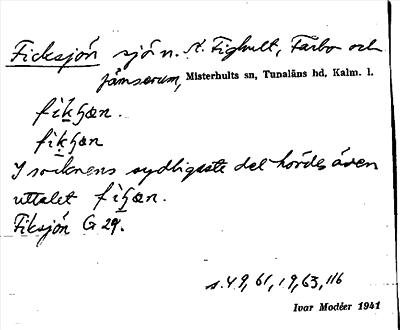 Ficksjön sjö n. Fighult, Farbo och
Jämserum, Misterhults sn, Tunaläns hd, Kalm. l.
fi̇kʒœn.
fikʒœn
I socknens sydligaste del hördes även
uttalet fiʒœn.
Fiksjön G 29.
s. 49, 61, 19, 63, 116
Ivar Modéer 1941